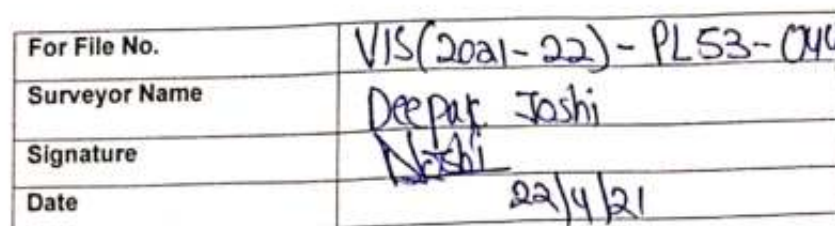 For File No. VIS(2021-22)-PL53-044
Surveyor Name Deepak Joshi
Signature
Date 22/4/21